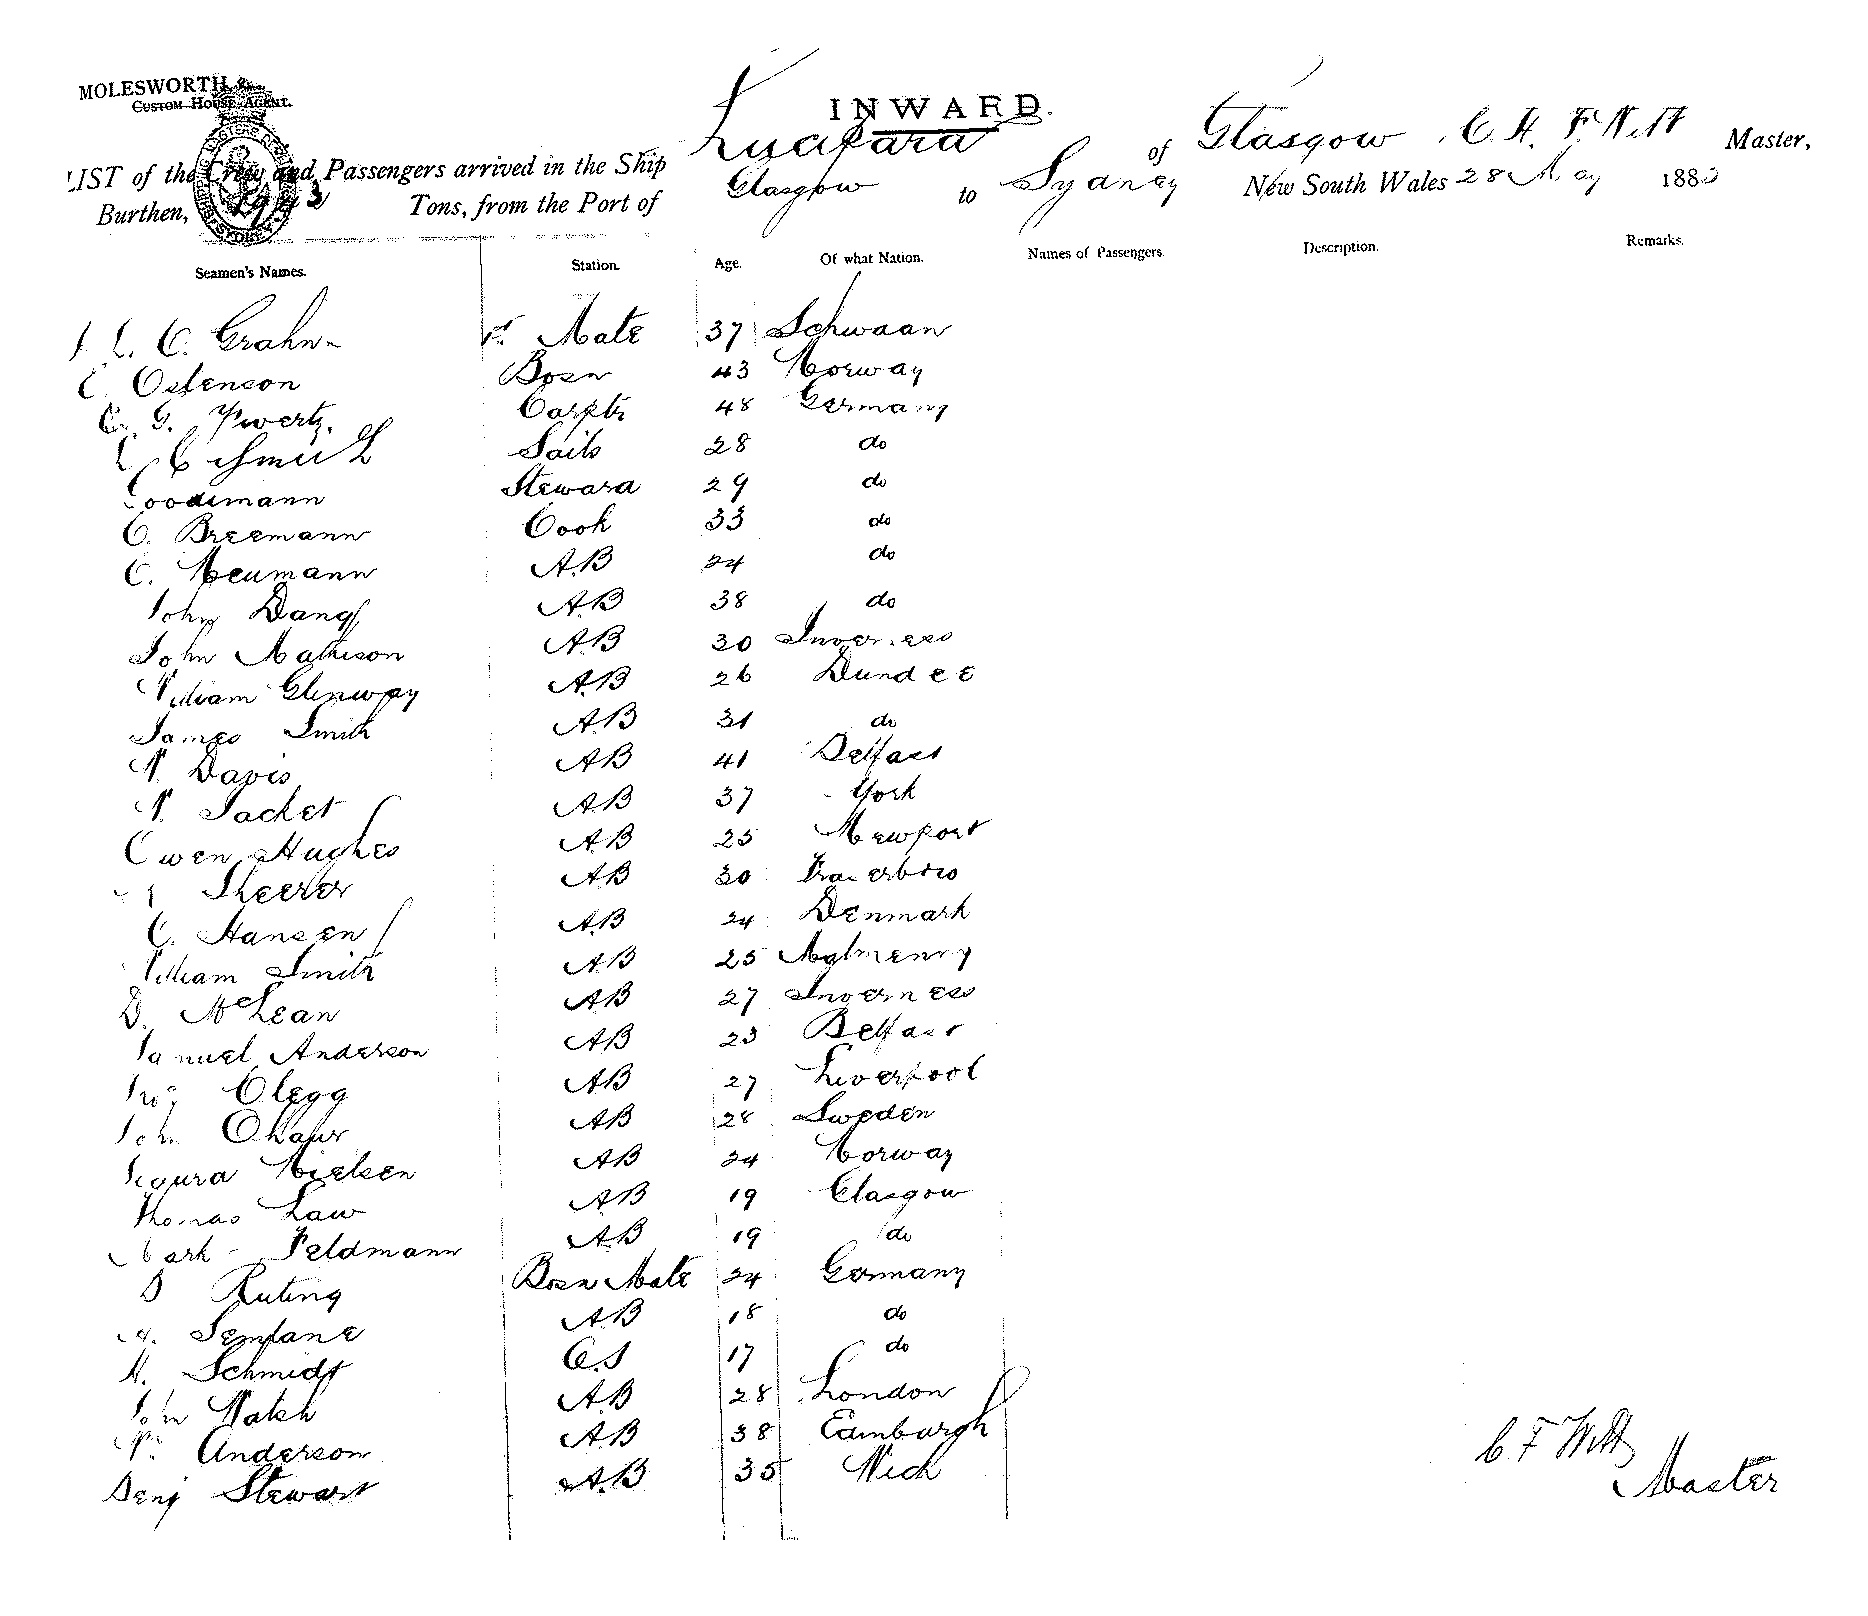 MOLESWORTH &
CUSTOM HOUSE AGENT.
INWARD.
LIST of the Crew and Passengers arrived in the Ship of Glasgow, C. H. F. Witt Master,
Burthen, Tons, from the Port of Glasgow to Sydney New South Wales 28 May 188
Seamen's Names. Station. Age. Of what Nation. Names of Passengers. Description. Remarks.
C. Grahn Mate 37 Schwaan
Ostenson Bosn 43 Norway
G. Carptr 48 Germany
Sails 28 do
Steward 29 do
C. Breemann Cook 33 do
C. Neumann A.B 24 do
John A.B 38 do
John Mathison A.B 30 Inverness
William Glenway A.B 26 Dundee
James Smith A.B 31 do
W. Davis A.B 41 Belfast
W. Sacket A.B 37 York
Owen Hughes A.B 25 Newport
Sheerer A.B 30
C. Hansen A.B 24 Denmark
William Smith A.B 25
D. McLean A.B 27 Inverness
Samuel Anderson A.B 23 Belfast
Clegg A.B 27 Liverpool
John A.B 28 Sweden
Nielsen A.B 24 Norway
Thomas Law A.B 19 Glasgow
Mark Feldmann A.B 19 do
Ruting Bosn Mate 24 Germany
A.B 18 do
H. Schmidt O.S 17 do
John Walsh A.B 28 London
Wm Anderson A.B 38 Edinburgh
Benj Stewart A.B 35 Wick
C F Witt
Master